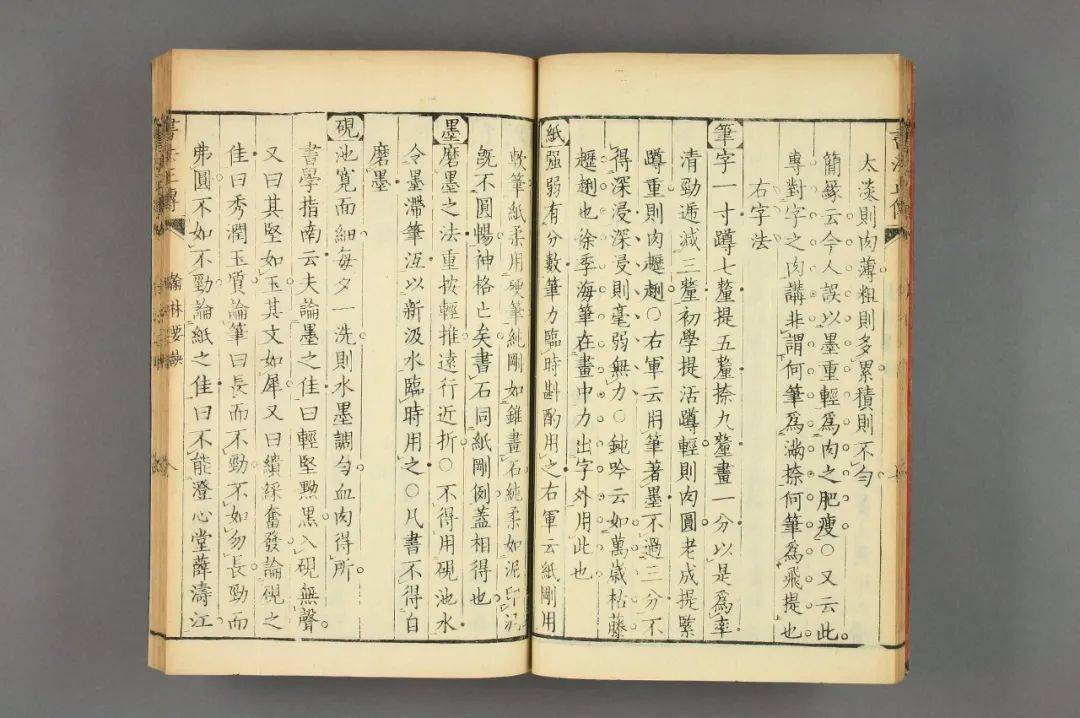 太淡則肉薄粗則多累積則不勻
簡緣云今人誤以墨重輕爲肉之肥瘦○又云此
專對字之肉講非謂何筆爲滿捺何筆爲飛提也
右字法
筆字一寸蹲七釐提五釐捺九釐畫一分以是爲率
清勁遞減三釐初學提活蹲輕則肉圓老成提緊
蹲重則肉趯趔○右軍云用筆著墨不過三分不
得深浸深浸則毫弱無力○鈍吟云如萬歲枯藤
趯趔也徐季海筆在畫中力出字外用此也
紙强弱有分數筆力臨時斟酌用之右軍云紙剛用
軟筆紙柔用硬筆純剛如錐畫石純柔如泥印泥
旣不圓暢神格亡矣書石同紙剛例蓋相得也
墨磨墨之法重按輕推遠行近折○不得用硯池水
令墨滯筆沍以新汲水臨時用之○凡書不得自
磨墨
硯池寬面細每夕一洗則水墨調勻血肉得所
書學指南云夫論墨之佳曰輕堅黝黑入硯無聲
又曰其堅如玉其文如犀又曰繢綵奮發論硯之
佳曰秀潤玉質論筆曰長而不勁不如勿長勁而
弗圓不如不勁論紙之佳曰不能澄心堂薛濤江
書法正傳
翰林要訣
八